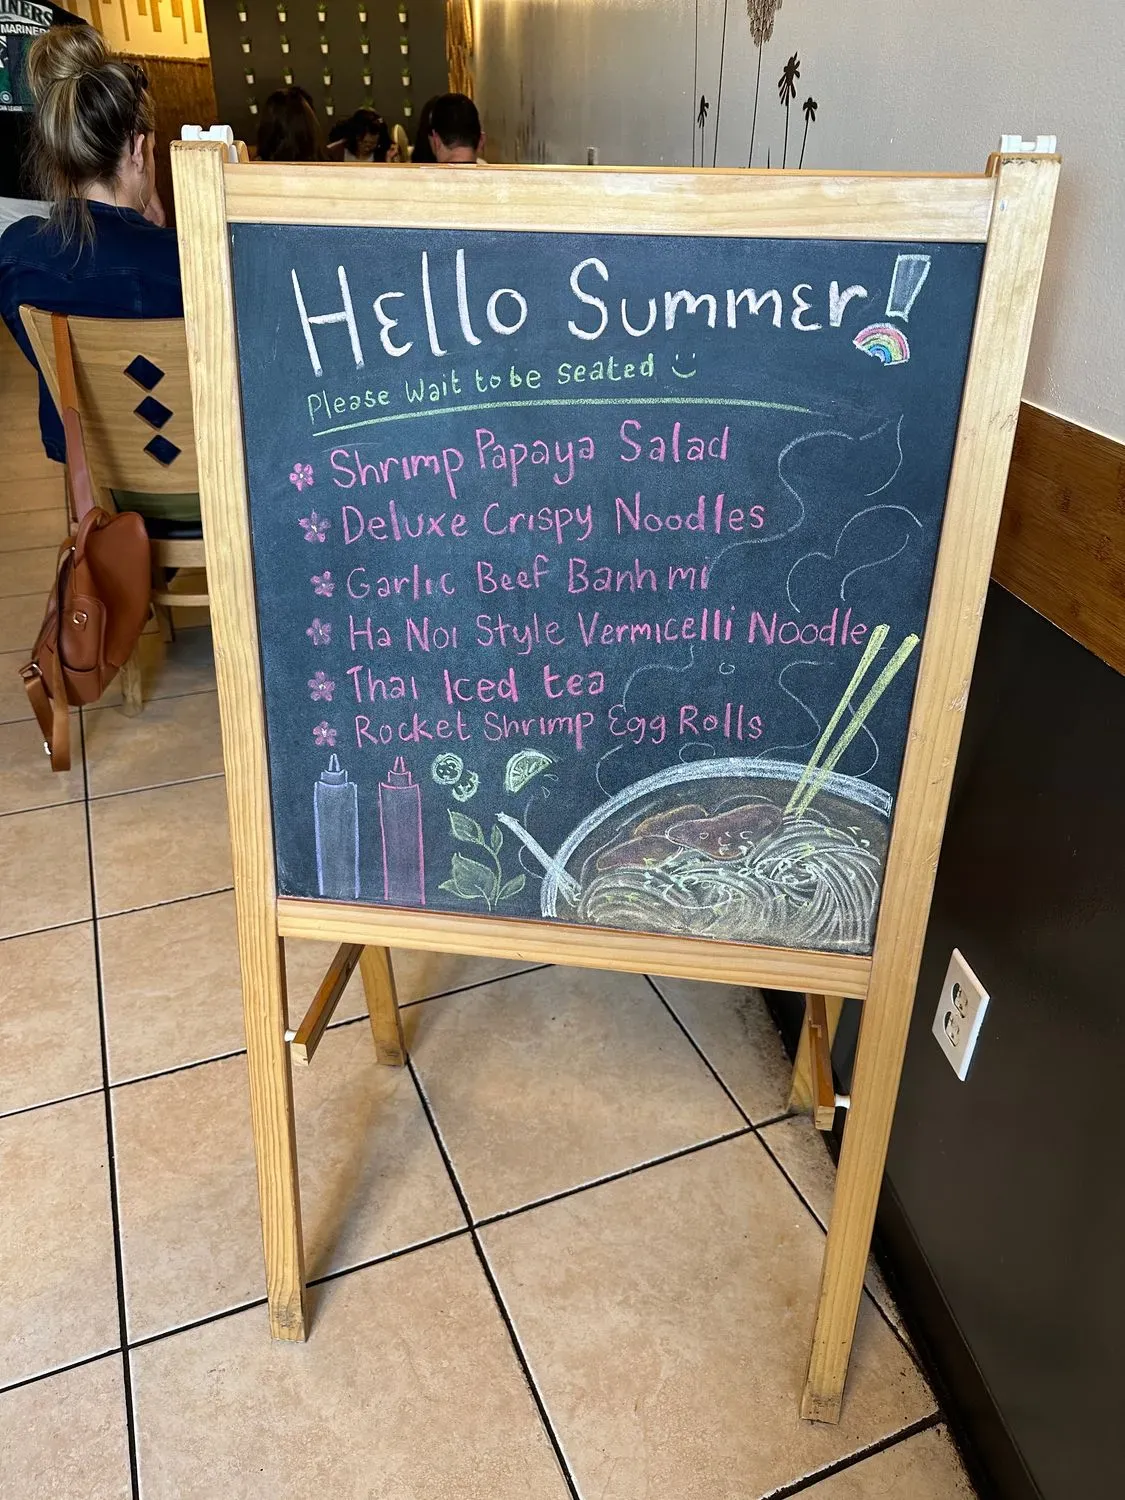 INERS
MARINER
Hello Summer!
Please Wait to be seated
Shrimp Papaya Salad
Deluxe Crispy Noodles
Garlic Beef Banh mi
Ha Noi Style Vermicelli Noodle
Thai Iced tea
Rocket Shrimp Egg Rolls